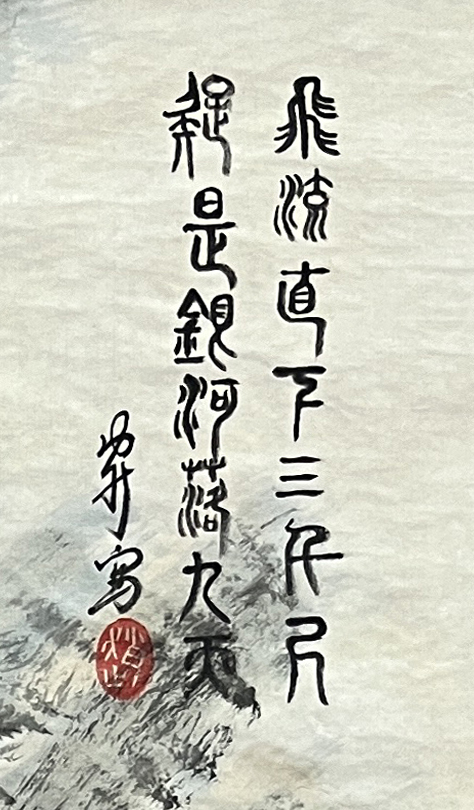 飛流直下三千尺
疑是銀河落九天
写